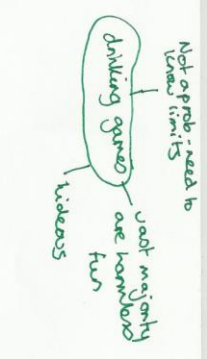 Not a prob - need to
know limits
drinking games
vast majority
are harmless
fun
hideous